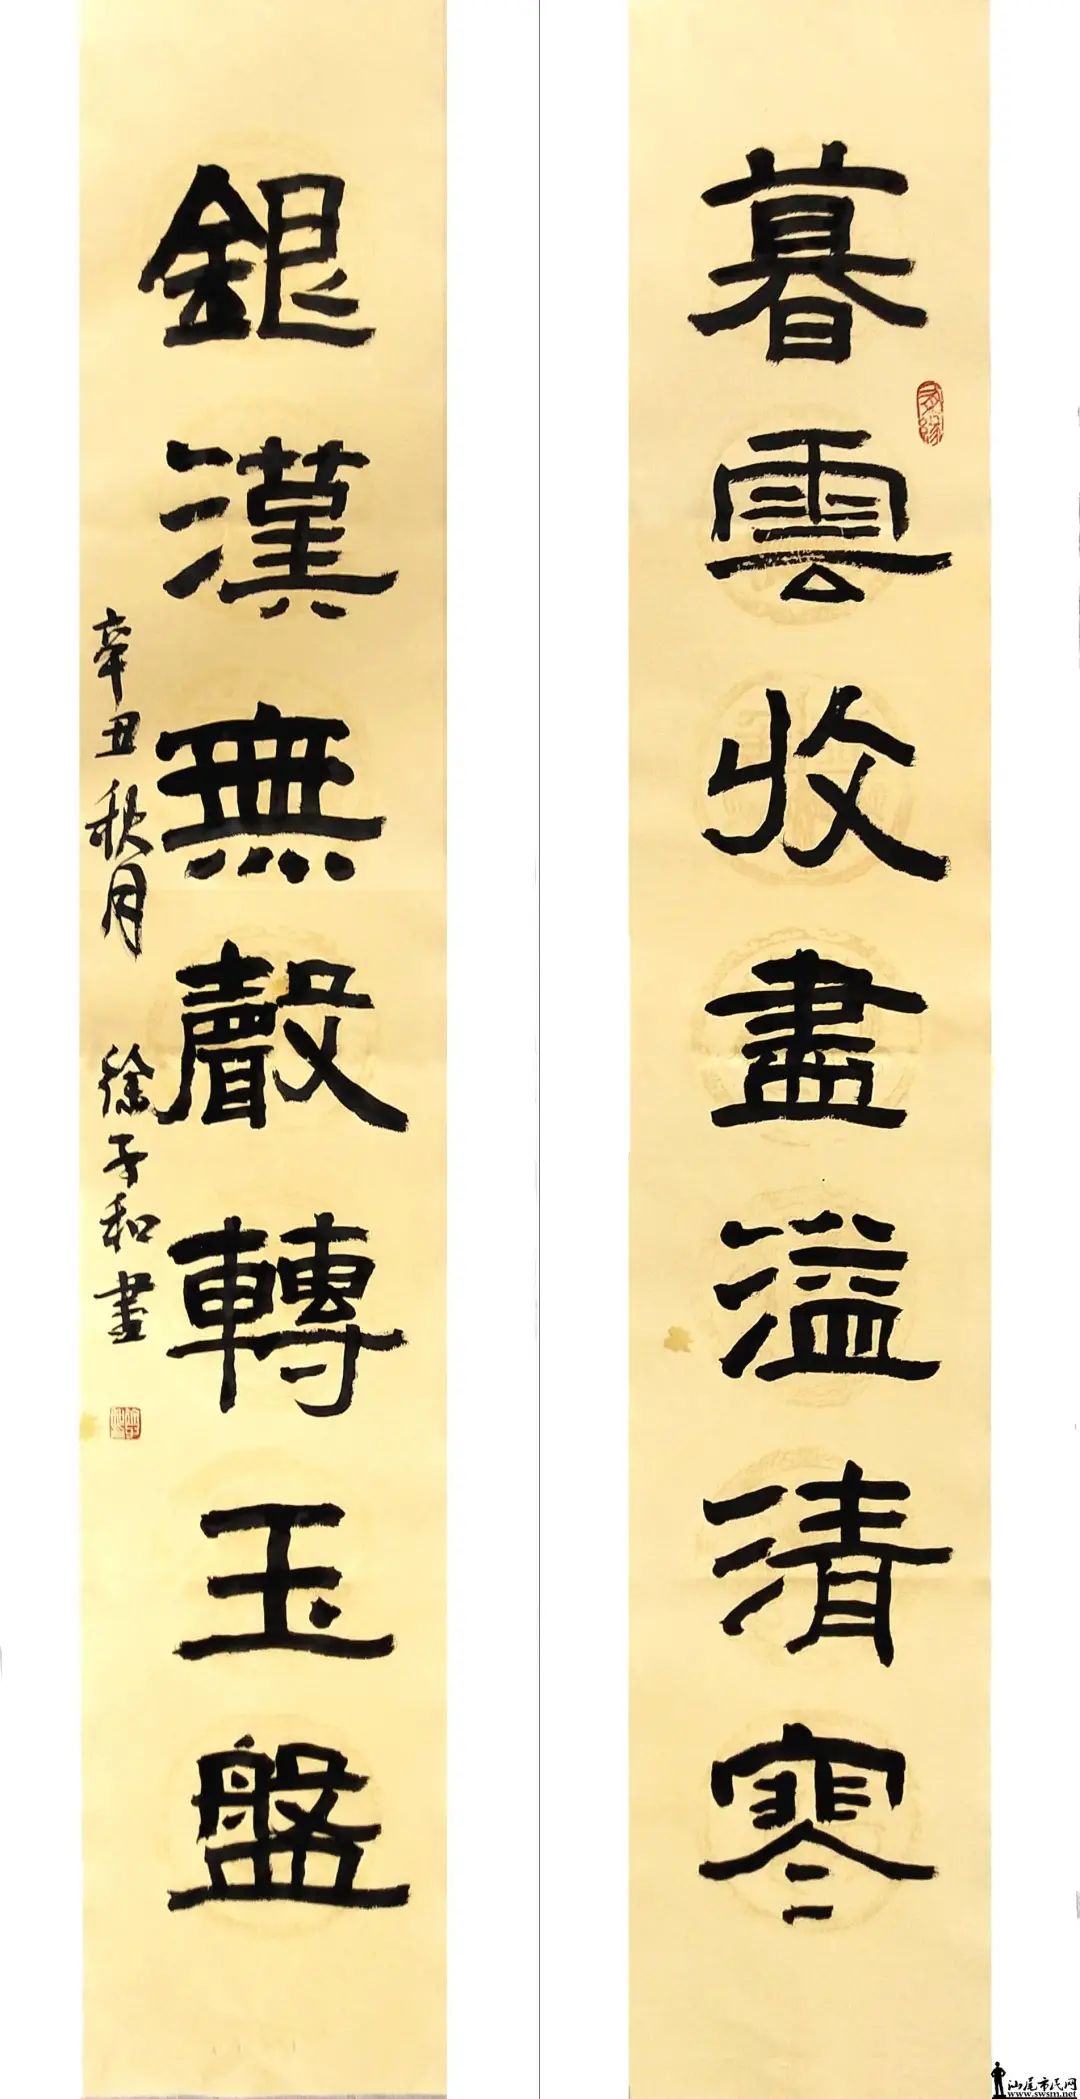 暮雲收盡溢清寒
銀漢無聲轉玉盤
辛丑秋月 徐子和書
汕尾市民网
www.swsm.net